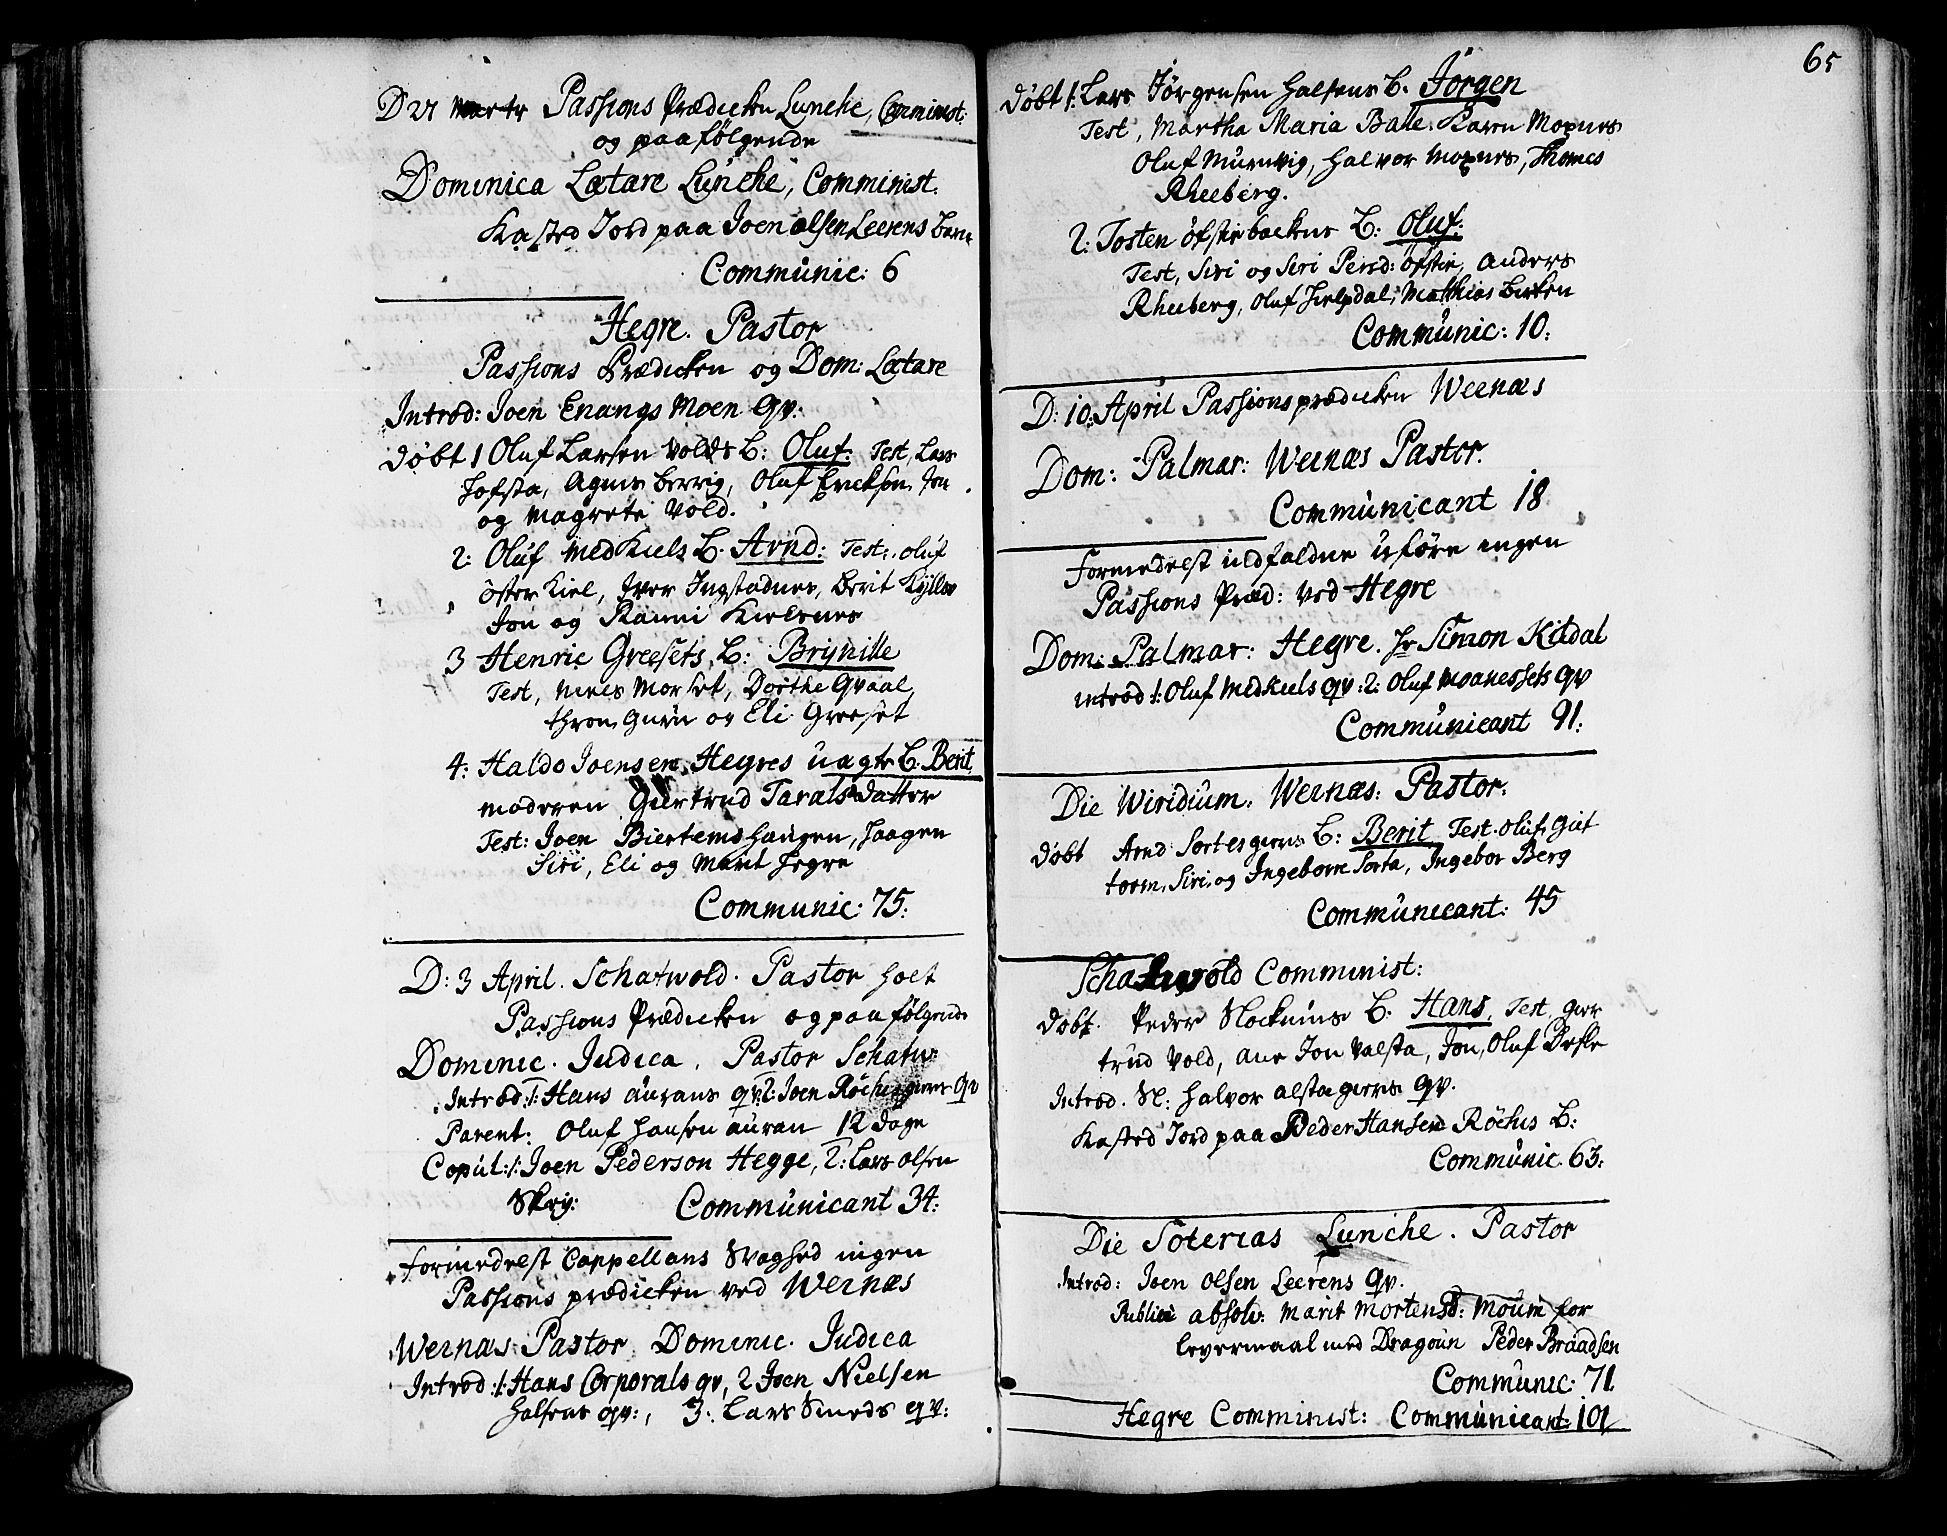 D 21 Martr Passions Prædicken Lunche, Comminist:
og paafølgende
Dominica Lætare Lunche, Comminist.
Kasted Jord paa Joen olsen Leerens barn
Communic: 6
Hegre. Pastor
Passions Prædicken og Dom: Lætare
Introd: Joen Enangs Moen qv.
døbt 1 Oluf Larsen Volds B: Oluf. Test, Lars
Hofsta, Agnis Berrig, Oluf Ericksen, Jon
og Magrete Vold.
2: Oluf Medkiels B. Arnd: Test: oluf
öster Kiel, Iver Ingstadnes, Berit Kyllo
Jon og Ranni Kielsnes
3 Henric Greesets B: Brynille
Test, Nels Morset, Dorthe Qvaal,
thron, Guru og Eli Greeset
4: Haldo Joensen Hegres uægte B. Berit
moderen Giertrud Taralsdatter
Test: Joen Biertemshaugen, Haagen
Siri, Eli og Marit Hegre
Communic: 75:
D: 3 April. Schatwold. Pastor holt
Passions Prædicken og paafølgende
Dominic. Judica, Pastor Schatw:
Introd: 1: Hans aurans qv: 2: Joen Röchesgierts qv
Parent: Oluf Hansen auran 12 dage
Copul: 1: Joen Pederson Hegge, 2: Lars olsen
Skrij: Communicant 34:
Formedelst Cappellans Svaghed ingen
Passions prædicken ved Wernæs
Wernæs Pastor Dominic. Judica
Introd: 1: Hans Corporals qv, 2 Joen Nielsen
Halsens qv:, 3: Lars Smeds qv:
65
døbt 1: Lars Jörgensen Halsens B. Jörgen
Test, Martha Maria Balle, Karen Moxnes
Oluf Muruvig, Halvor Moxnes, Thomes
Rheeberg.
2: Tosten öfstebackens B: Oluf:
Test, Siri og Siri Persd: öfstie, Anders
Rheeberg, Oluf Hielpdal, Matthias Berken
Communic: 10:
D: 10: April Passionsprædicken Wernæs
Dom: Palmar: Wernæs Pastor.
Communicant 18
Formedelst ildfaldne uføre ingen
Passions Præd: ved Hegre
Dom: Palmar: Hegre. Hr Simon Kildal
introd 1: Oluf Medkiels qv: 2: Oluf Moanessets qv
Communicant 91:
Die Wiridium. Wernæs: Pastor.
døbt Arnd Sortesgierts B: Berit Test. Oluf Giet
torm, Siri og Ingeborre Sorta, Ingebor Berg
Communicant: 45
Schatwold Comminist:
døbt. Peder Slockums B. Hans, Test, Gier
trud Vold, ane Jon Valsta, Jon, Oluf Dresle
Introd. Sl: Halvor alstagierts qv.
Kasted Jord paa Peder Hansens Röches B:
Communic. 63:
Die Soterias Lunche. Pastor
Introd: Joen olsen Leerens qv.
Publice absolv: Marit Mortensd: Moum for
levermaal med Dragoun Peder Braadsen
Communic: 71
Hegre Comminist: Communicant: 101